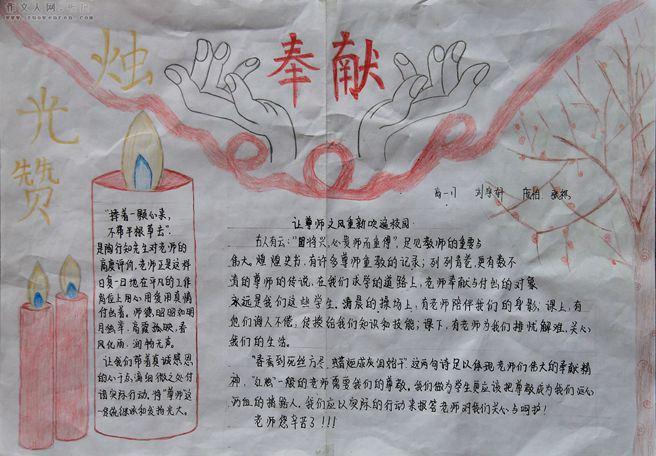 作文人网
www.zuowenren.com
烛光赞
奉献
"捧着一颗心来,
不带半根草去".
是陶行知先生对老师的
高度评价,老师正是这样
日复一日地在平凡的工作
岗位上用心用爱用真情
付出着,师德,明明如明
月独举,高霞孤映,春
风化雨,润物无声.
让我们带着真诚感恩
的心于点滴细微之处付
诸实际行动,将"尊师"这
一优良传承和发扬光大。
让尊师之风重新吹遍校园
古人有云:"国将兴,心贵师而重傅",足见教师的重要与
伟大,煌煌史书,有许多尊师重教的记录;列列青览,更有数不
清的尊师的传说,在我们求学的道路上,老师奉献与付出的对象
永远是我们这些学生,清晨的操场上,有老师陪伴我们的身影;课上,有
他们诲人不倦,传授给我们知识和技能;课下,有老师为我们排忧解难,关心
我们的生活。
"春蚕到死丝方尽,蜡炬成灰泪始干"这两句诗足以体现老师们伟大的奉献精
神,"红烛"一般的老师需要我们的尊敬,我们做为学生更应该把尊敬成为我们
沥血的接路人,我们应以实际的行动来报答老师对我们关心与呵护!
老师您辛苦了!!!